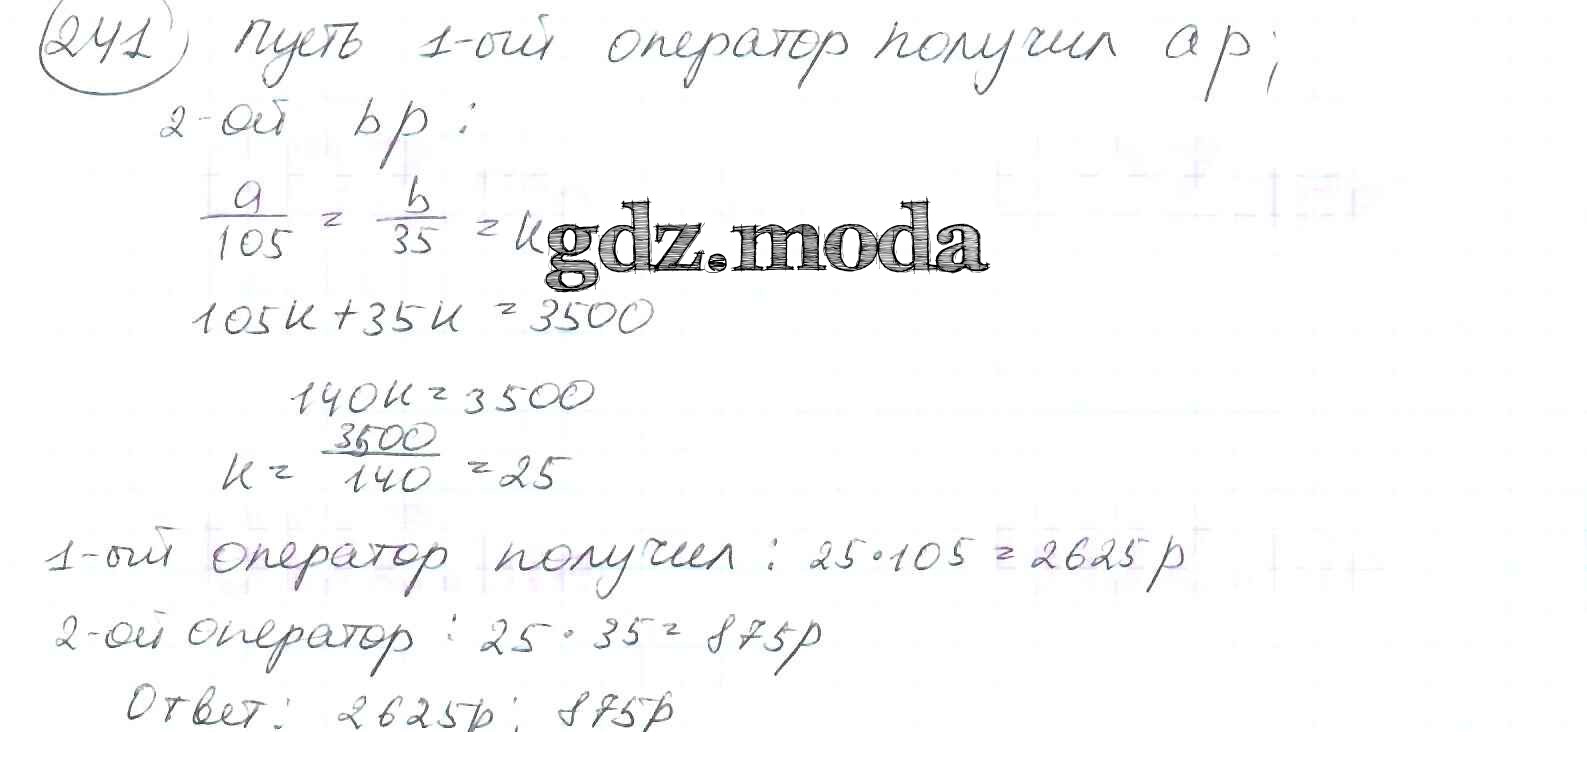 241) Пусть 1-ый оператор получил a р;
2-ой b р:
a/105 = b/35 = к
gdz.moda
105к + 35к = 3500
140к = 3500
к = 3500/140 = 25
1-ый оператор получил: 25·105 = 2625р
2-ой оператор: 25·35 = 875р
Ответ: 2625р; 875р